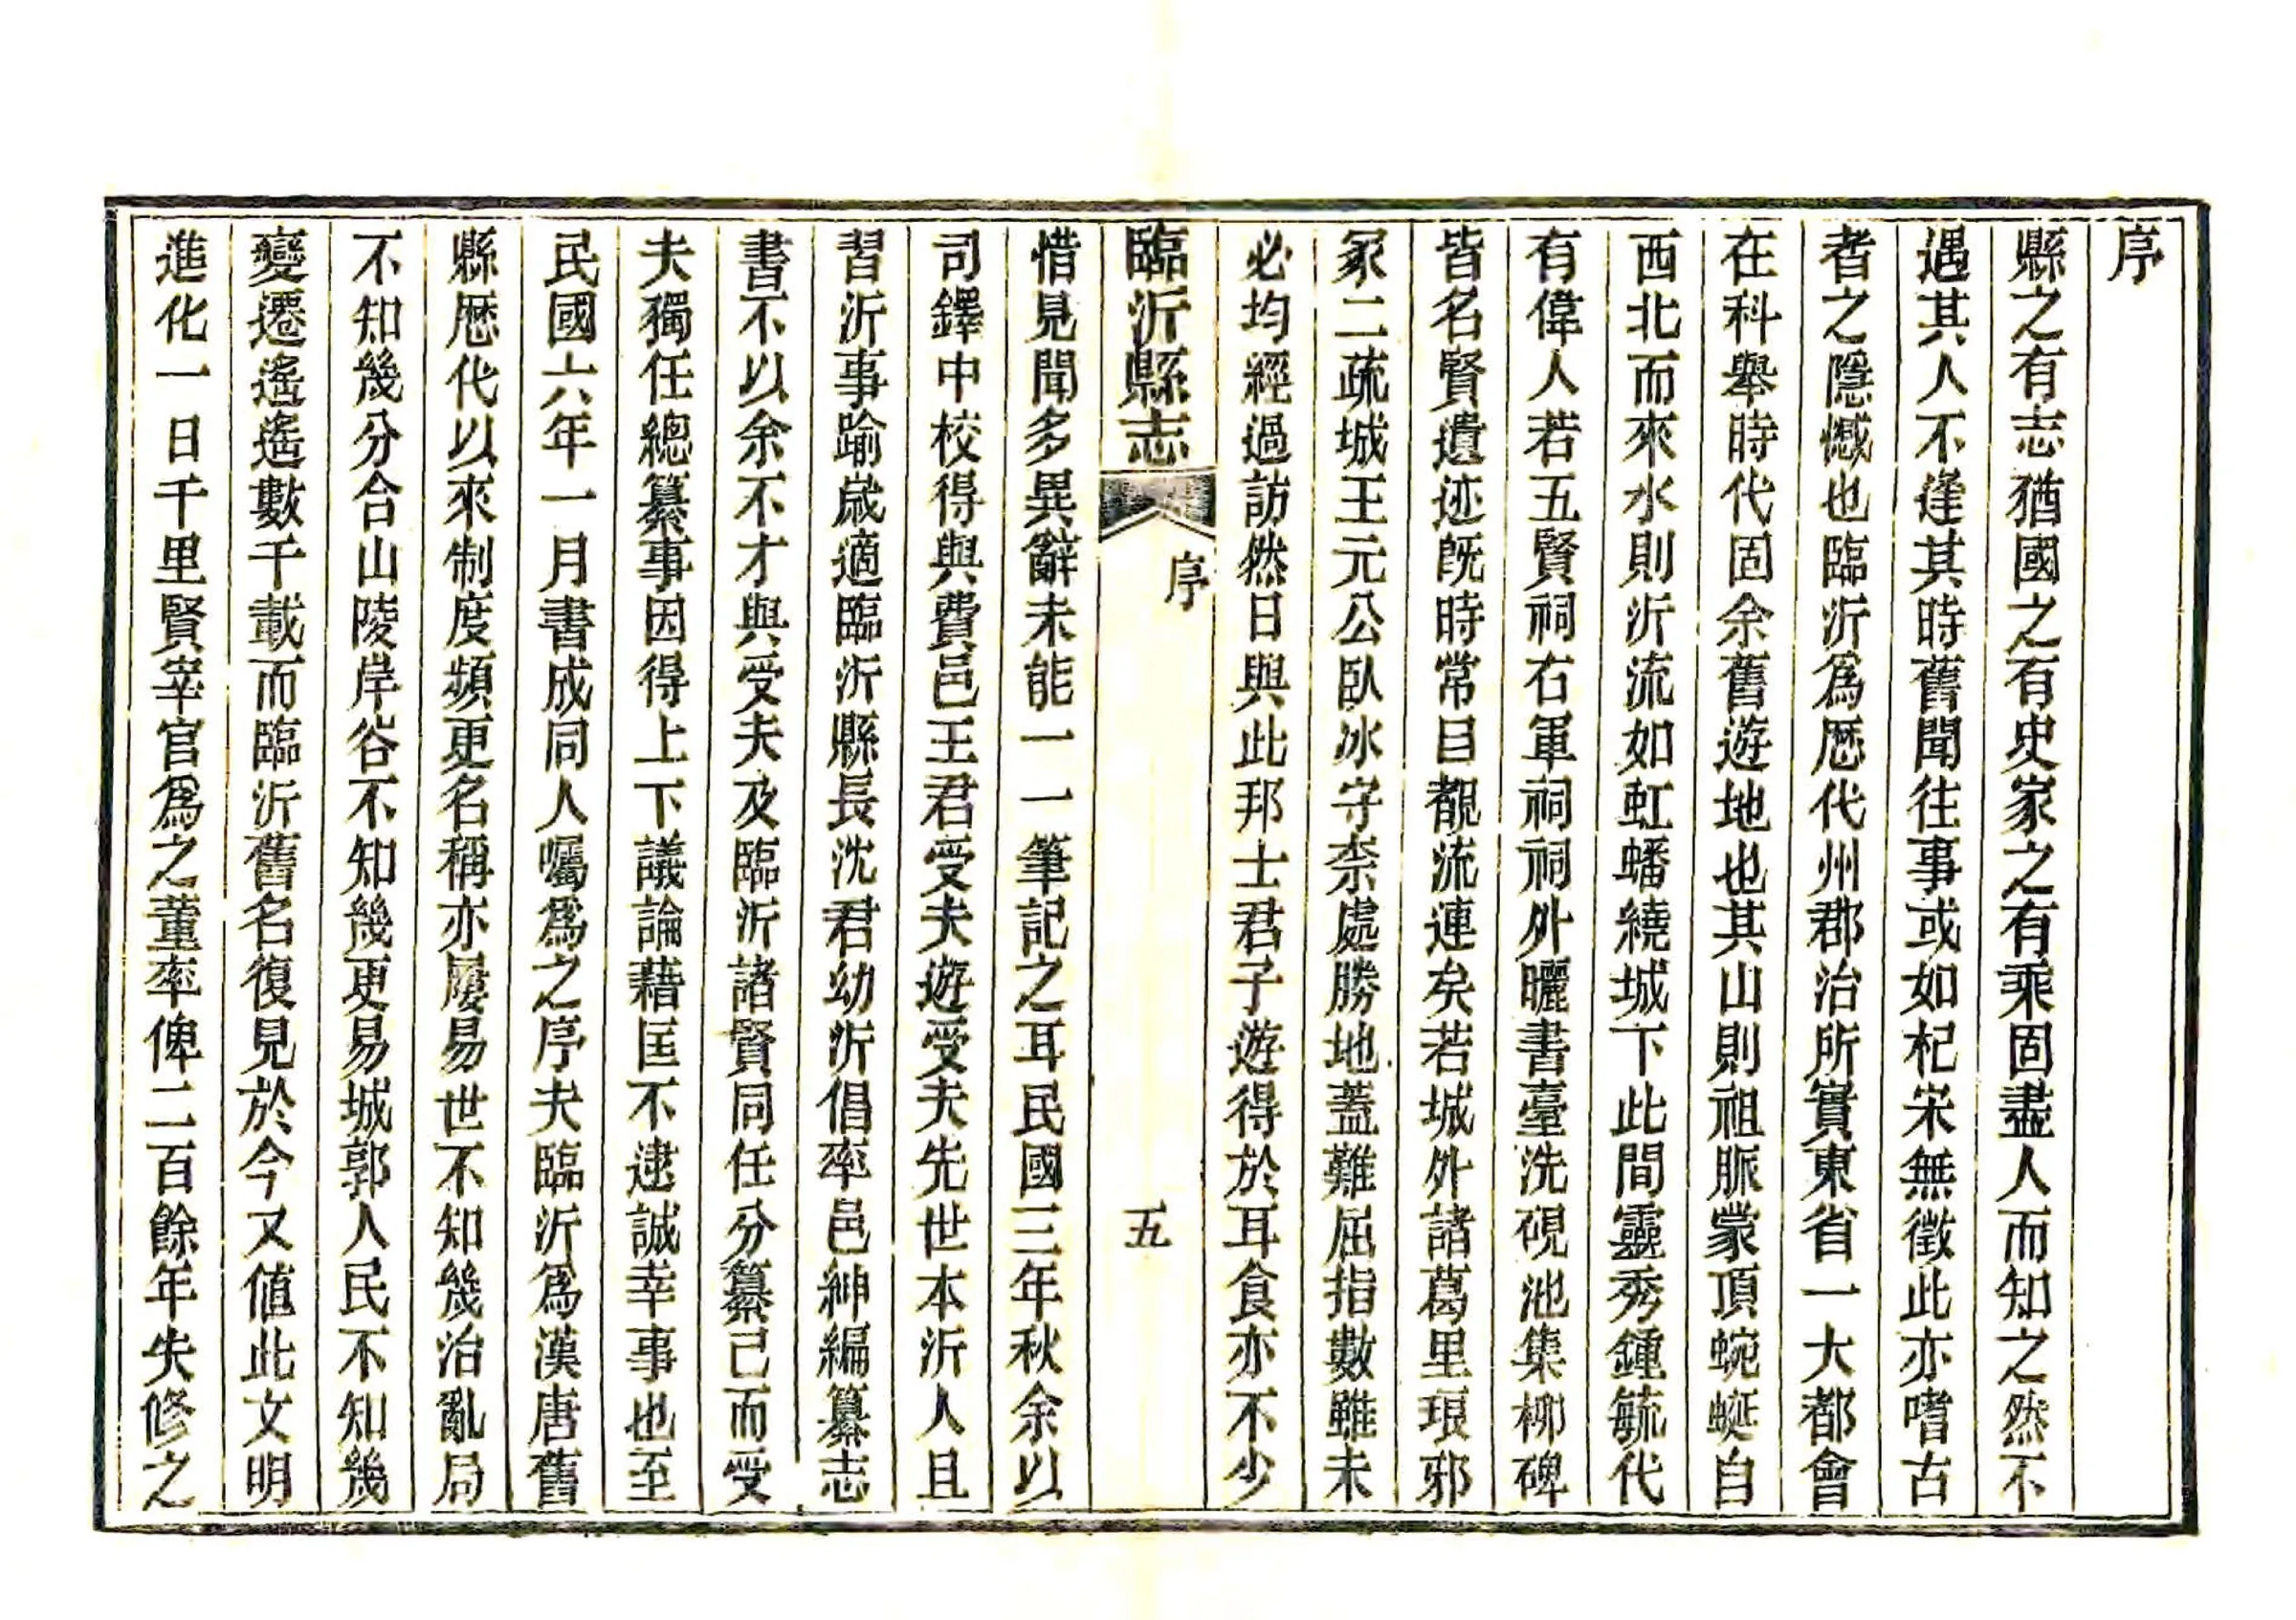 序
縣之有志猶國之有史家之有乘固盡人而知之然不
遇其人不逢其時舊聞往事或如杞宋無徵此亦嗜古
者之隱憾也臨沂爲歴代州郡治所實東省一大都會
在科舉時代固余舊遊地也其山則祖脈蒙頂蜿蜒自
西北而來水則沂流如虹蟠繞城下此間靈秀鍾毓代
有偉人若五賢祠右軍祠祠外曬書臺洗硯池集柳碑
皆名賢遺迹既時常目覩流連矣若城外諸葛里琅邪
冢二疏城王元公臥冰字柰處勝地蓋難屈指數雖未
必均經過訪然日與此邦士君子遊得於耳食亦不少
臨沂縣志
序
五
惜見聞多異辭未能一一筆記之耳民國三年秋余以
司鐸中校得與費邑王君受夫遊受夫先世本沂人且
習沂事踰嵗適臨沂縣長沈君幼沂倡率邑紳編纂志
書不以余不才與受夫及臨沂諸賢同任分纂已而受
夫獨任總纂事因得上下議論藉匡不逮誠幸事也至
民國六年一月書成同人囑爲之序夫臨沂爲漢唐舊
縣歴代以來制度頻更名稱亦屢易世不知幾治亂局
不知幾分合山陵岸谷不知幾更易城郭人民不知幾
變遷遙遙數千載而臨沂舊名復見於今又値此文明
進化一日千里賢宰官爲之董率俾二百餘年失修之